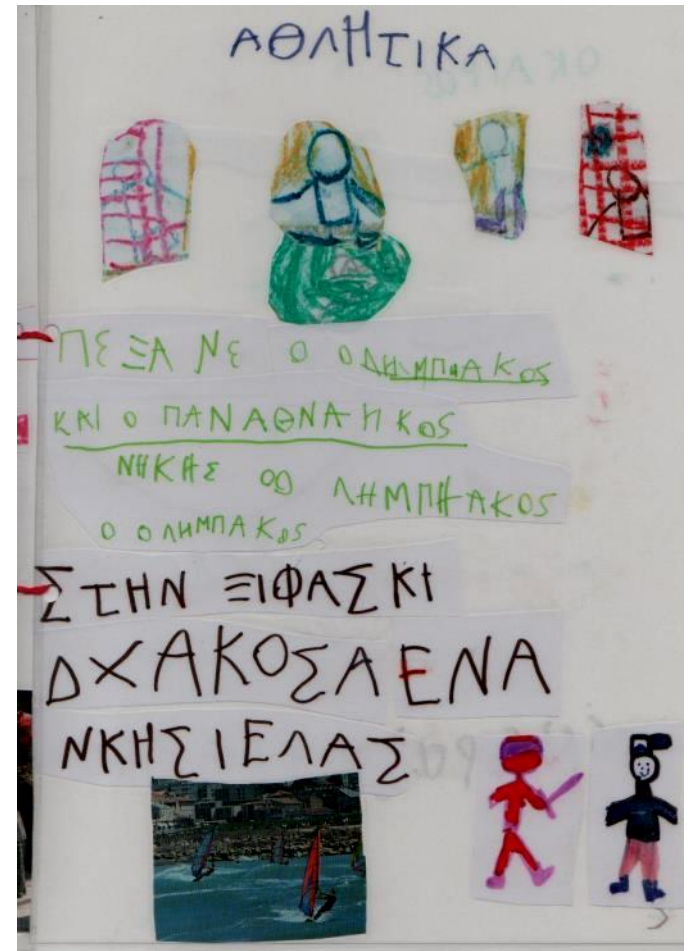 ΑΘΛΗΤΙΚΑ
ΠΕΞΑΝΕ Ο ΟΛΗΜΠΑΚΟΣ
ΚΑΙ Ο ΠΑΝΑΘΝΑΗΚΟΣ
ΝΗΚΗΣ ΟΟ ΛΗΜΠΗΑΚΟΣ
Ο ΟΛΗΜΠΑΚΟΣ
ΣΤΗΝ ΞΙΦΑΣΚΙ
ΔΧΑΚΟΣΑ ΕΝΑ
ΝΚΗΣΙΕΛΑΣ